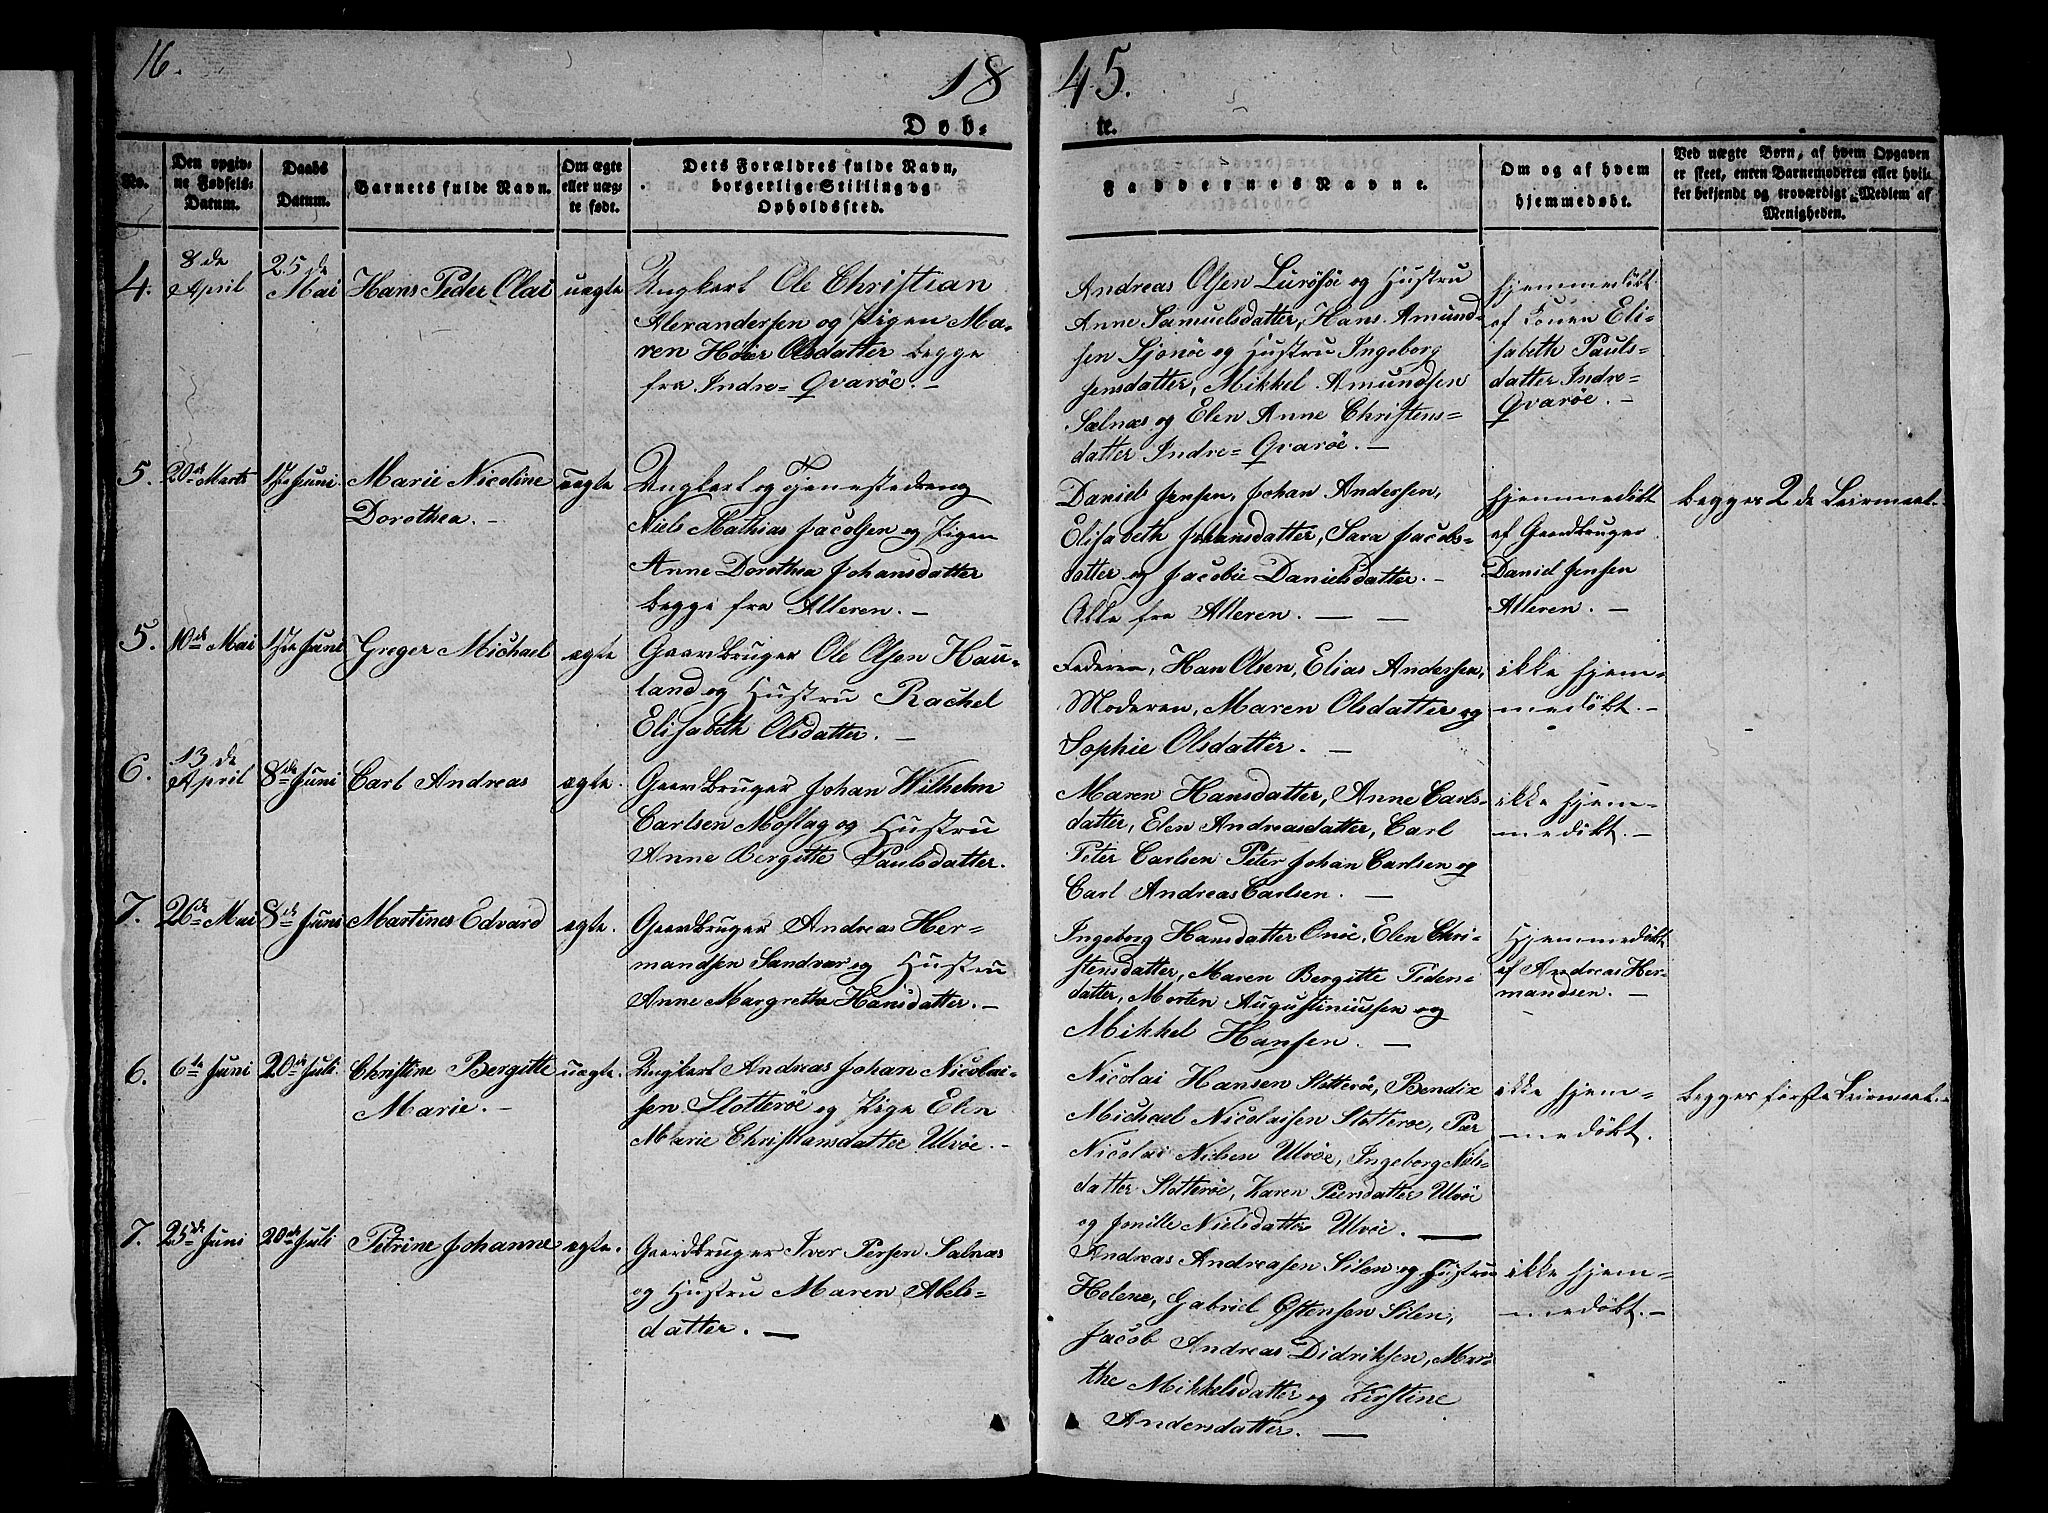 16.
1845.
Døb-te.
No.
Den opgiv-
ne Fødsels-
Datum.
Daabs
Datum.
Barnets fulde Navn.
Om ægte
eller uæg-
te født.
Dets Forældres fulde Navn,
borgerlige Stilling og
Opholdssted.
Faddernes Navne.
Om og af hvem
hjemmedøbt.
Ved uægte Børn, af hvem Opgaven
er skeet, enten Barnemoderen eller hvil-
ket bekjendt og troværdigt Medlem af
Menigheden.
4.
8de
April
25de
Mai
Hans Peder Olai
uægte
Ungkarl Ole Christian
Alexandersen og Pigen Ma-
ren Høier Olsdatter begge
fra Indre-Qvarøe. –
Andreas Olsen Lurøsøe og Hustru
Anne Samuelsdatter, Hans Amund-
sen Sjonøe og Hustru Ingeborg
Jensdatter, Mikkel Amundsen
Sælnæs og Elen Anne Christens-
datter Indre-Qvarøe. –
hjemmedöbt
af Konen Eli-
sabeth Pauls-
datter Indre-
Qvarøe. –
5.
20de Marts
1ste Juni
Marie Nicoline
Dorothea. –
uægte
Ungkarl og Tjenestedreng
Niels Mathias Jacobsen og Pigen
Anne Dorothea Johansdatter
begge fra Alteren. –
Daniel Jensen, Johan Andersen,
Elisabeth Johansdatter, Sara Jacobs-
datter og Jacobie Danielsdatter. –
Alle fra Alteren. – –
hjemmedöbt
af Gaardbruger
Daniel Jensen
Alteren. –
begges 2de Leiermaal.
5.
10de Mai
1ste Juni
Greger Michael
ægte
Gaardbruger Ole Olsen Hau-
land og Hustru Rachel
Elisabeth Olsdatter. –
Faderen, Han Olsen, Elias Andersen,
Moderen, Maren Olsdatter og
Sophie Olsdatter. –
ikke hjem-
medöbt. –
6.
13de
April
8de Juni
Carl Andreas
ægte.
Gaardbruger Johan Wilhelm
Carlsen Moflag og Hustru
Anne Bergitte Paulsdatter.
Maren Hansdatter, Anne Carls-
datter, Elen Andreasdatter, Carl
Peter Carlsen Peter Johan Carlsen og
Carl Andreas Carlsen. –
ikke hjem-
medöbt. –
7.
26de Mai
8de Juni
Martines Edvard
ægte.
Gaardbruger Andreas Her-
mandsen Sandvær og Hustru
Anne Margrethe Hansdatter. –
Ingeborg Hansdatter Onøe, Elen Chri-
stensdatter, Maren Bergitte Peders-
datter, Morten Augustiniussen og
Mikkel Hansen. –
Hjemmedöbt
af Andreas Her-
mandsen. –
6.
6te Juni
20de Juli.
Christine Bergitte
Marie. –
uægte.
Ungkarl Andreas Johan Nicolai-
sen Slotterøe og Pige Elen
Marie Christiansdatter Ulvøe. –
Nicolai Hansen Slotterøe, Bendix
Michael Nicolaisen Slotterøe, Per
Nicolai Nielsen Ulvøe, Ingeborg Niels-
datter Slotterøe, Karen Peersdatter Ulvöe
og Jonille Nielsdatter Ulvöe. –
ikke hjem-
medöbt.
begges første Leiermaal. –
7.
25de Juni
20de Juli
Petrine Johanne
ægte.
Gaardbruger Iver Persen Salnæs
og Hustru Maren Abels-
datter. –
Andreas Andreasen Silen og Hustru
Helene, Gabriel Østensen Silen,
Jacob Andreas Didriksen, Mar-
the Mikkelsdatter og Kirstine
Andersdatter. –
ikke hjem-
medöbt. –